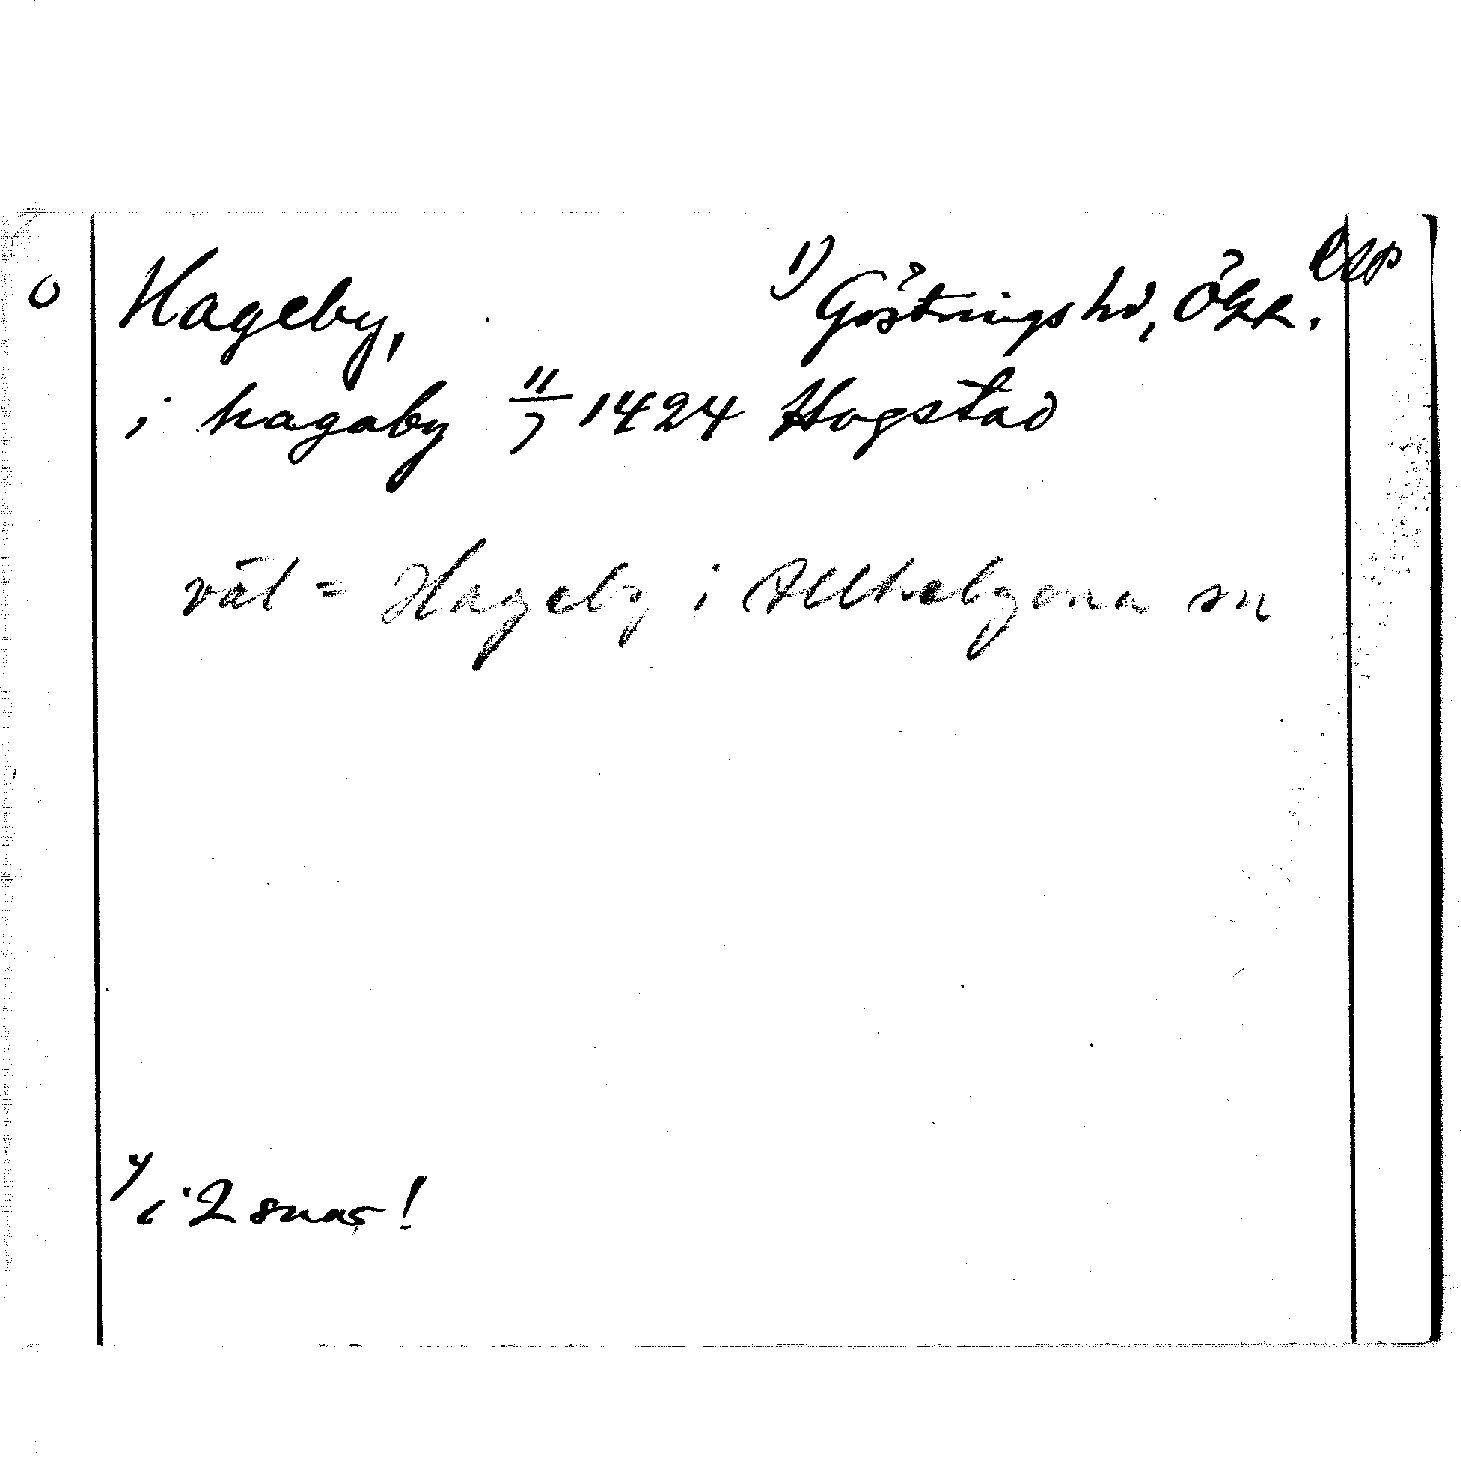 o Hageby, 1) Göstrings hd, Ögl.
i hagaby 11/7 1424 Hogstad
väl = Hageby i Allhelgona sn
1) i 2 snar!